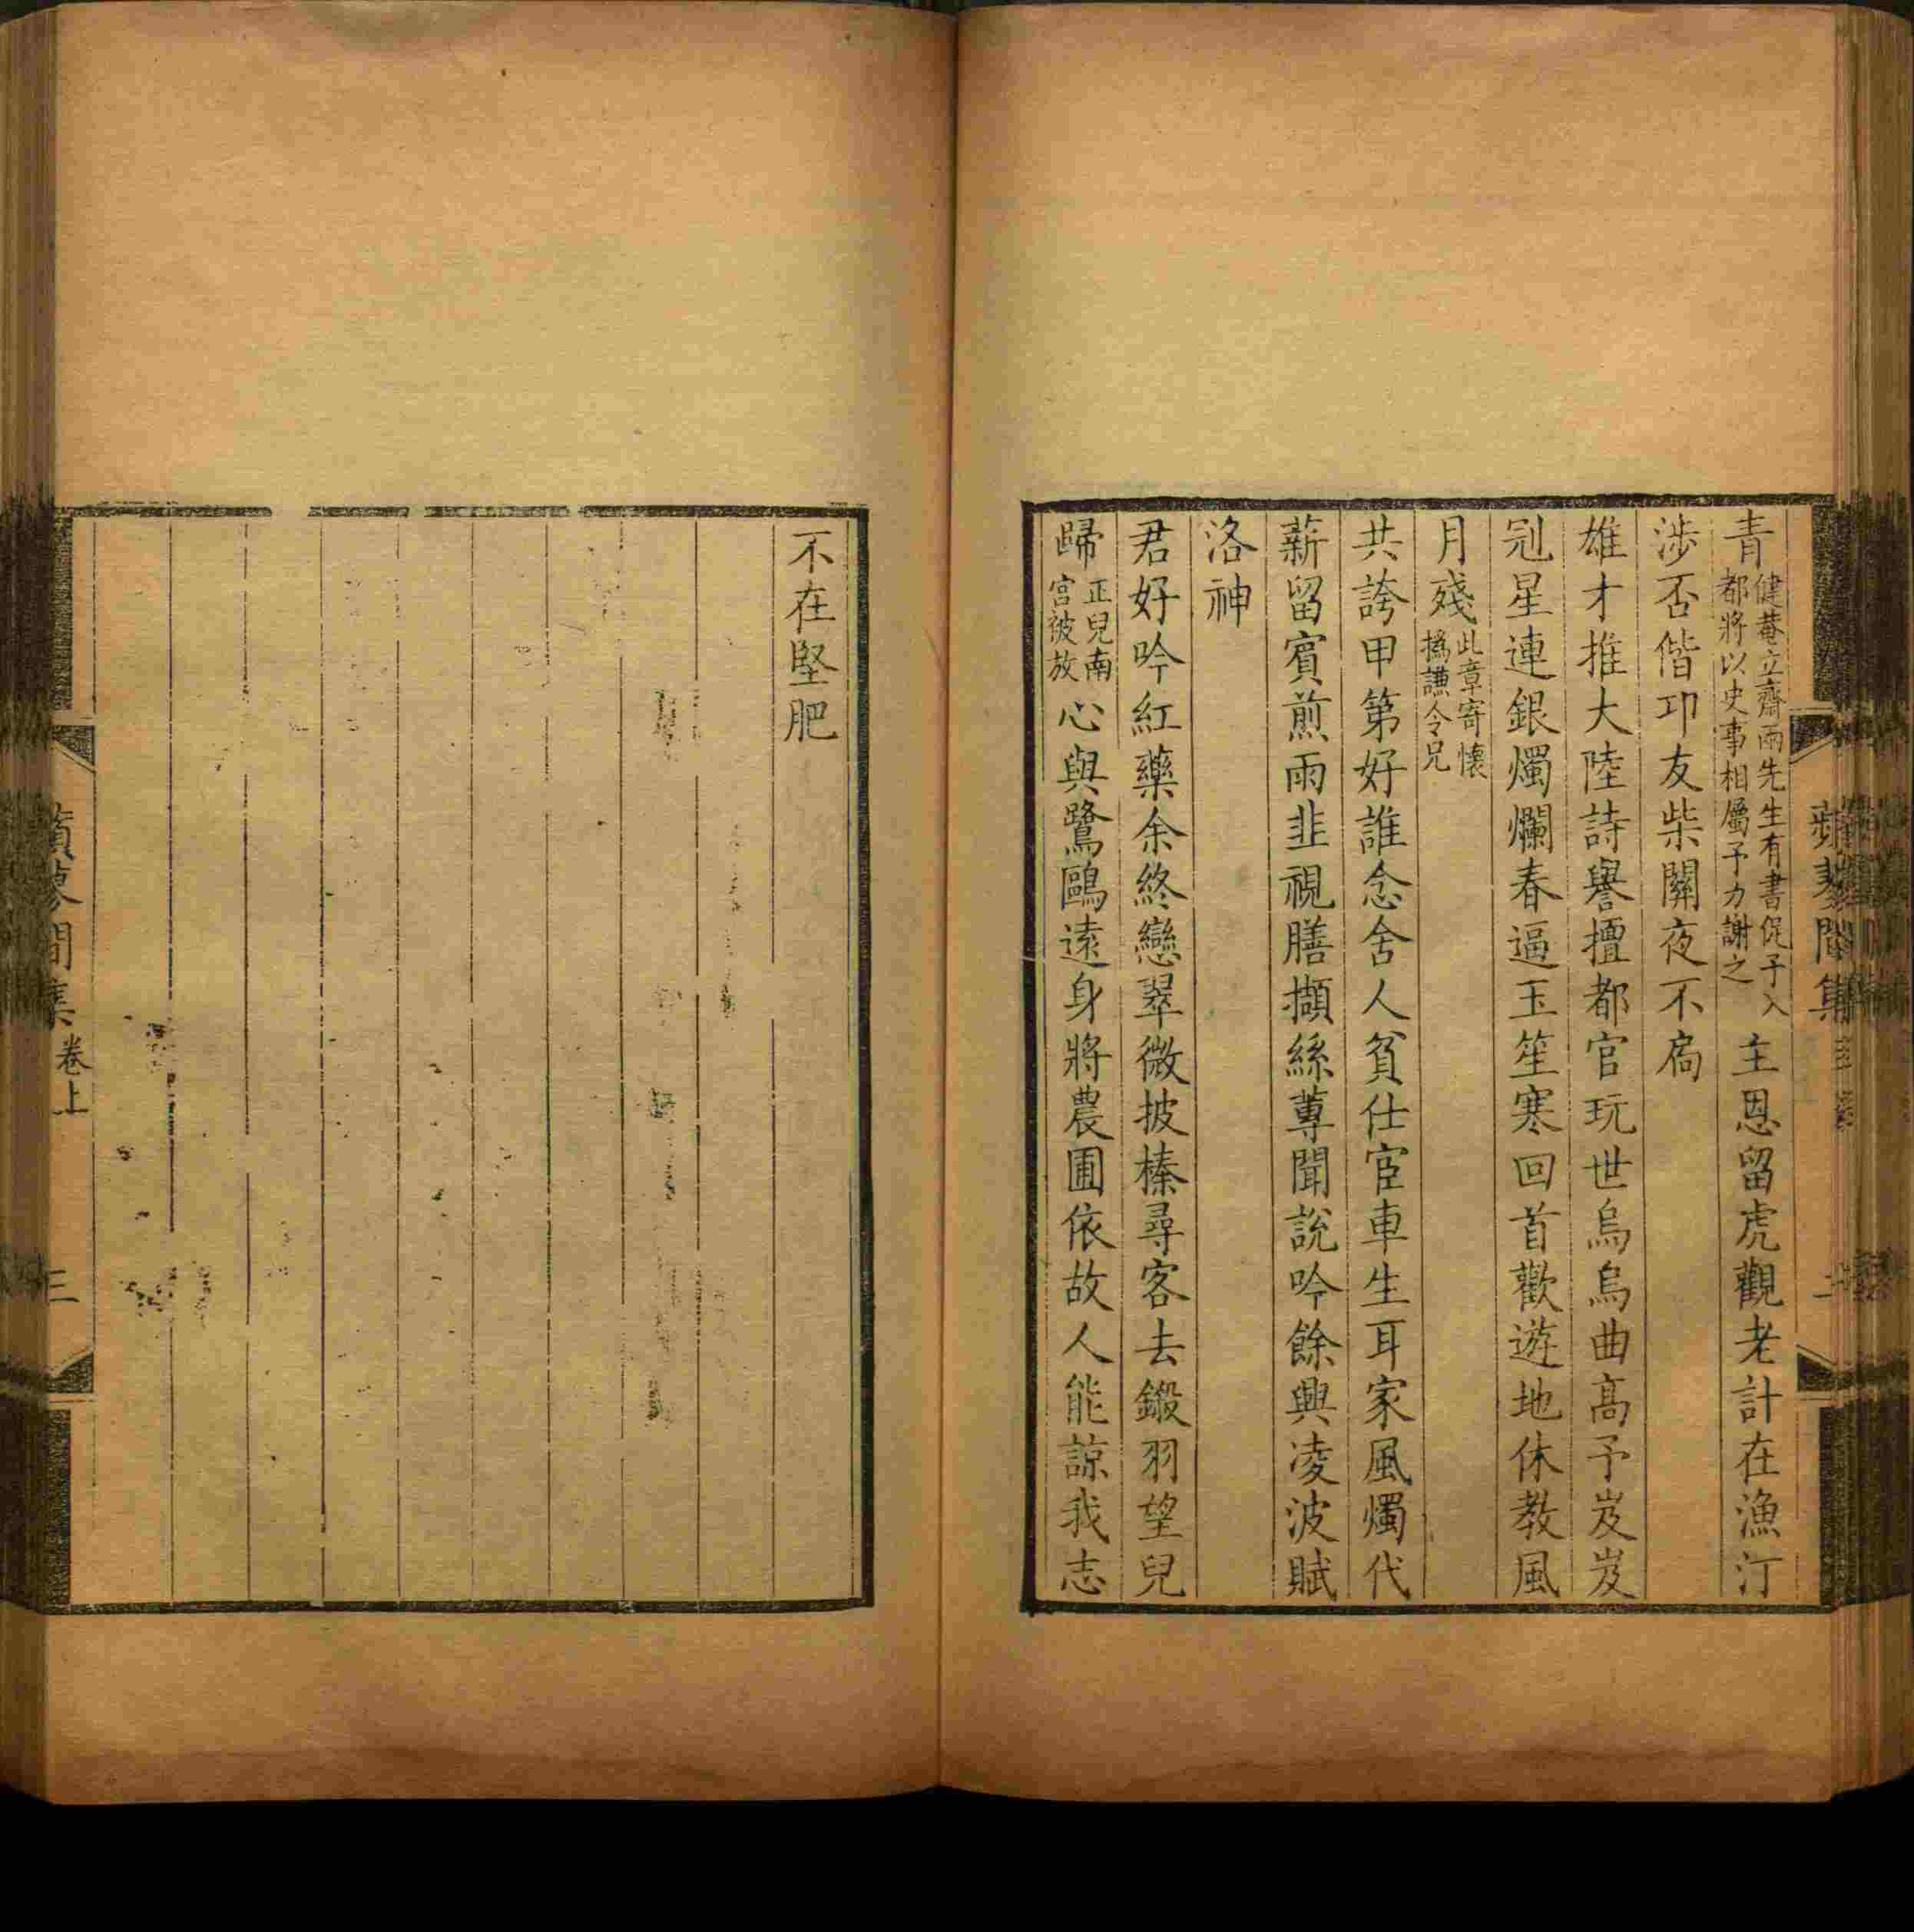 青健菴立齋兩先生有書促予入都將以史事相屬予力謝之主恩留虎觀老計在漁汀
涉否偕卭友柴關夜不扃
雄才推大陸詩譽擅都官玩世烏烏曲高予岌岌
冠星連銀燭爛春逼玉笙寒回首歡遊地休教風
月殘此章寄懷撝謙令兄
共誇甲第好誰念舍人貧仕宦車生耳家風燭代
薪留賓煎雨韭視膳擷絲蓴聞說吟餘興凌波賦
洛神
君好吟紅藥余終戀翠微披榛尋客去鍛羽望兒
歸正兒南宮被放心與鷺鷗遠身將農圃依故人能諒我志
不在堅肥
蘋蓼閒集卷上
三